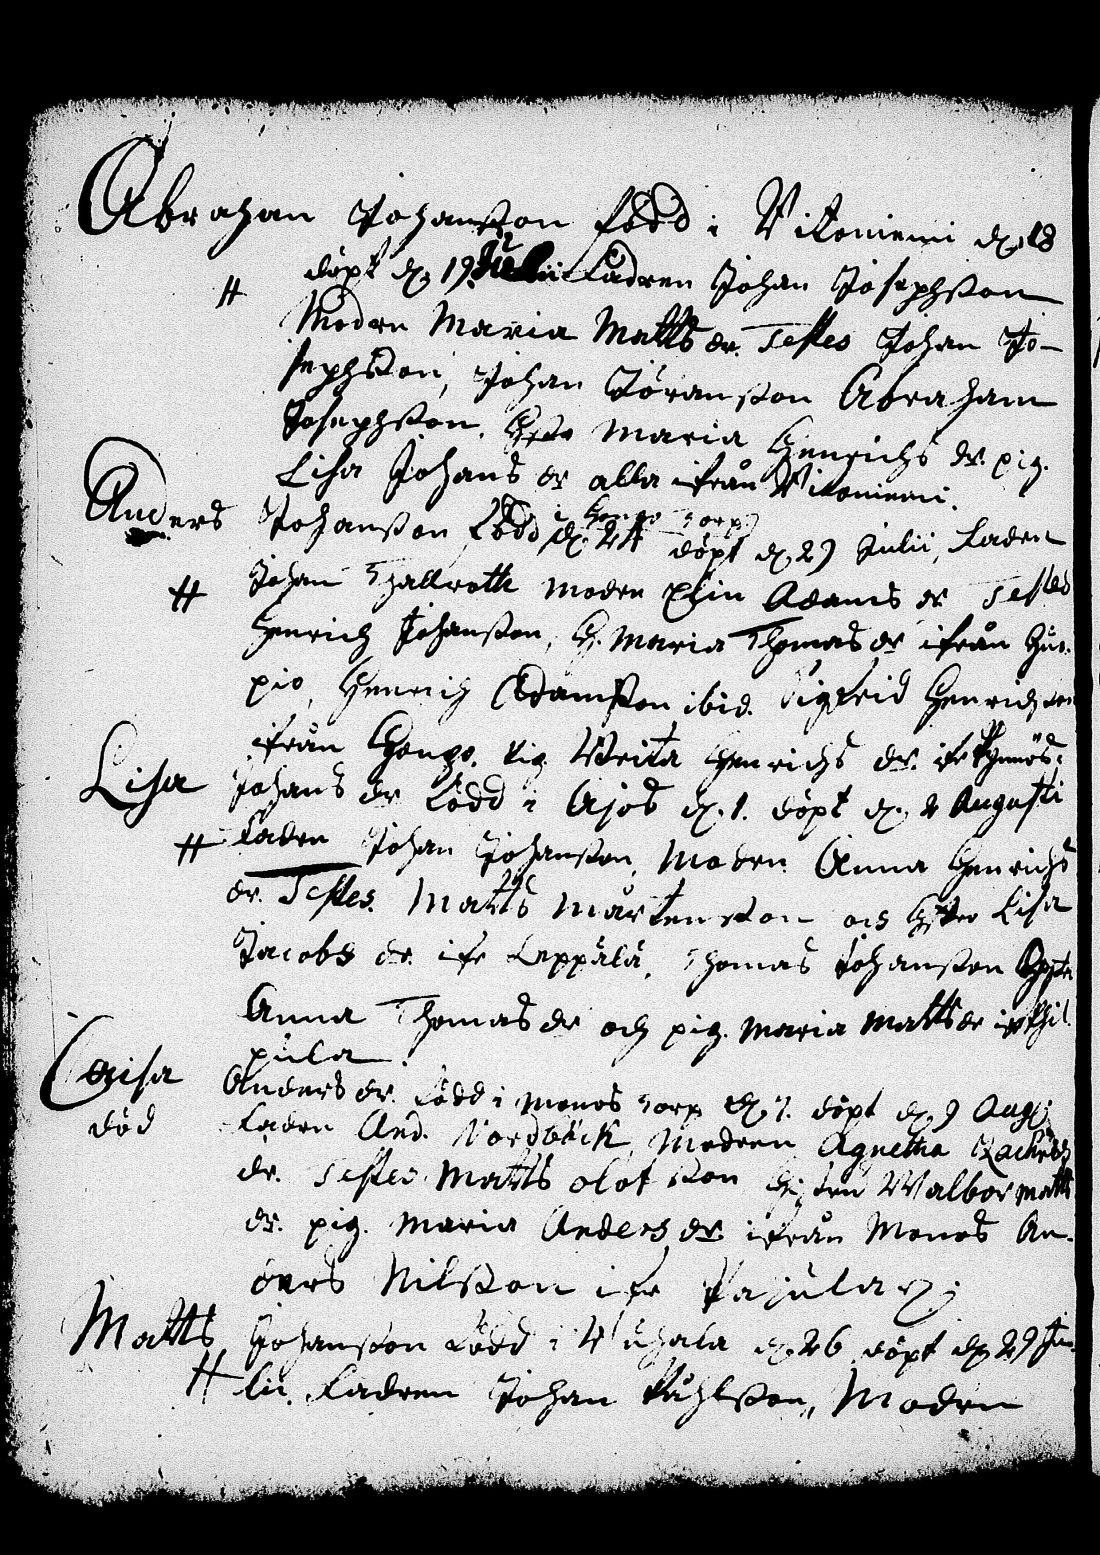 Abraham Johansson född i Vitoniemi d. 18
döpt d. 19 Julii Fadren Johan Josephsson
Modren Maria Matts dr. Testes Johan Jo-
sephsson, Johan Jöransson Abraham
Josephsson. Maria Henrichs dr. pig.
Lisa Johans dr alla ifrån Vitoniemi
Anders Johansson född i torp d. 24 döpt d. 29 Julii, Faden
Johan Thallroth Moden Adams dr Testes
Henrich Johansson, H. Maria Thomas dr ifrån
pio, Henrich Adamsson ibid. Sigfrid Henrichsson
ifrån Hongo. pig Brita Henrichs dr. ifr
Lisa Johans dr född i Ajos d. 1. döpt d. 2 Augusti
Faden Johan Johansson, Modren Anna Henrichs
dr. Testes. Matts Mårtensson och Lisa
Jacobs dr. ifr Lappälä, Thomas Johansson
Anna Thomas dr och pig. Maria Matts dr ifr Phil
pula
Caisa Anders dr. född i Monos torp d. 7. döpt d. 9 Aug:
död Faden And. Nordbäck, Modren Agnetha Zachris
dr. Testes Matts Olofsson Hustru Walbor Matts
dr. pig. Maria Anders dr. ifrån Monos An-
ders Nilsson ifr Pajula
Matts Johansson född i d. 26 döpt d. 29 Ju-
lii. Fadren Johan Påhlsson, Modren